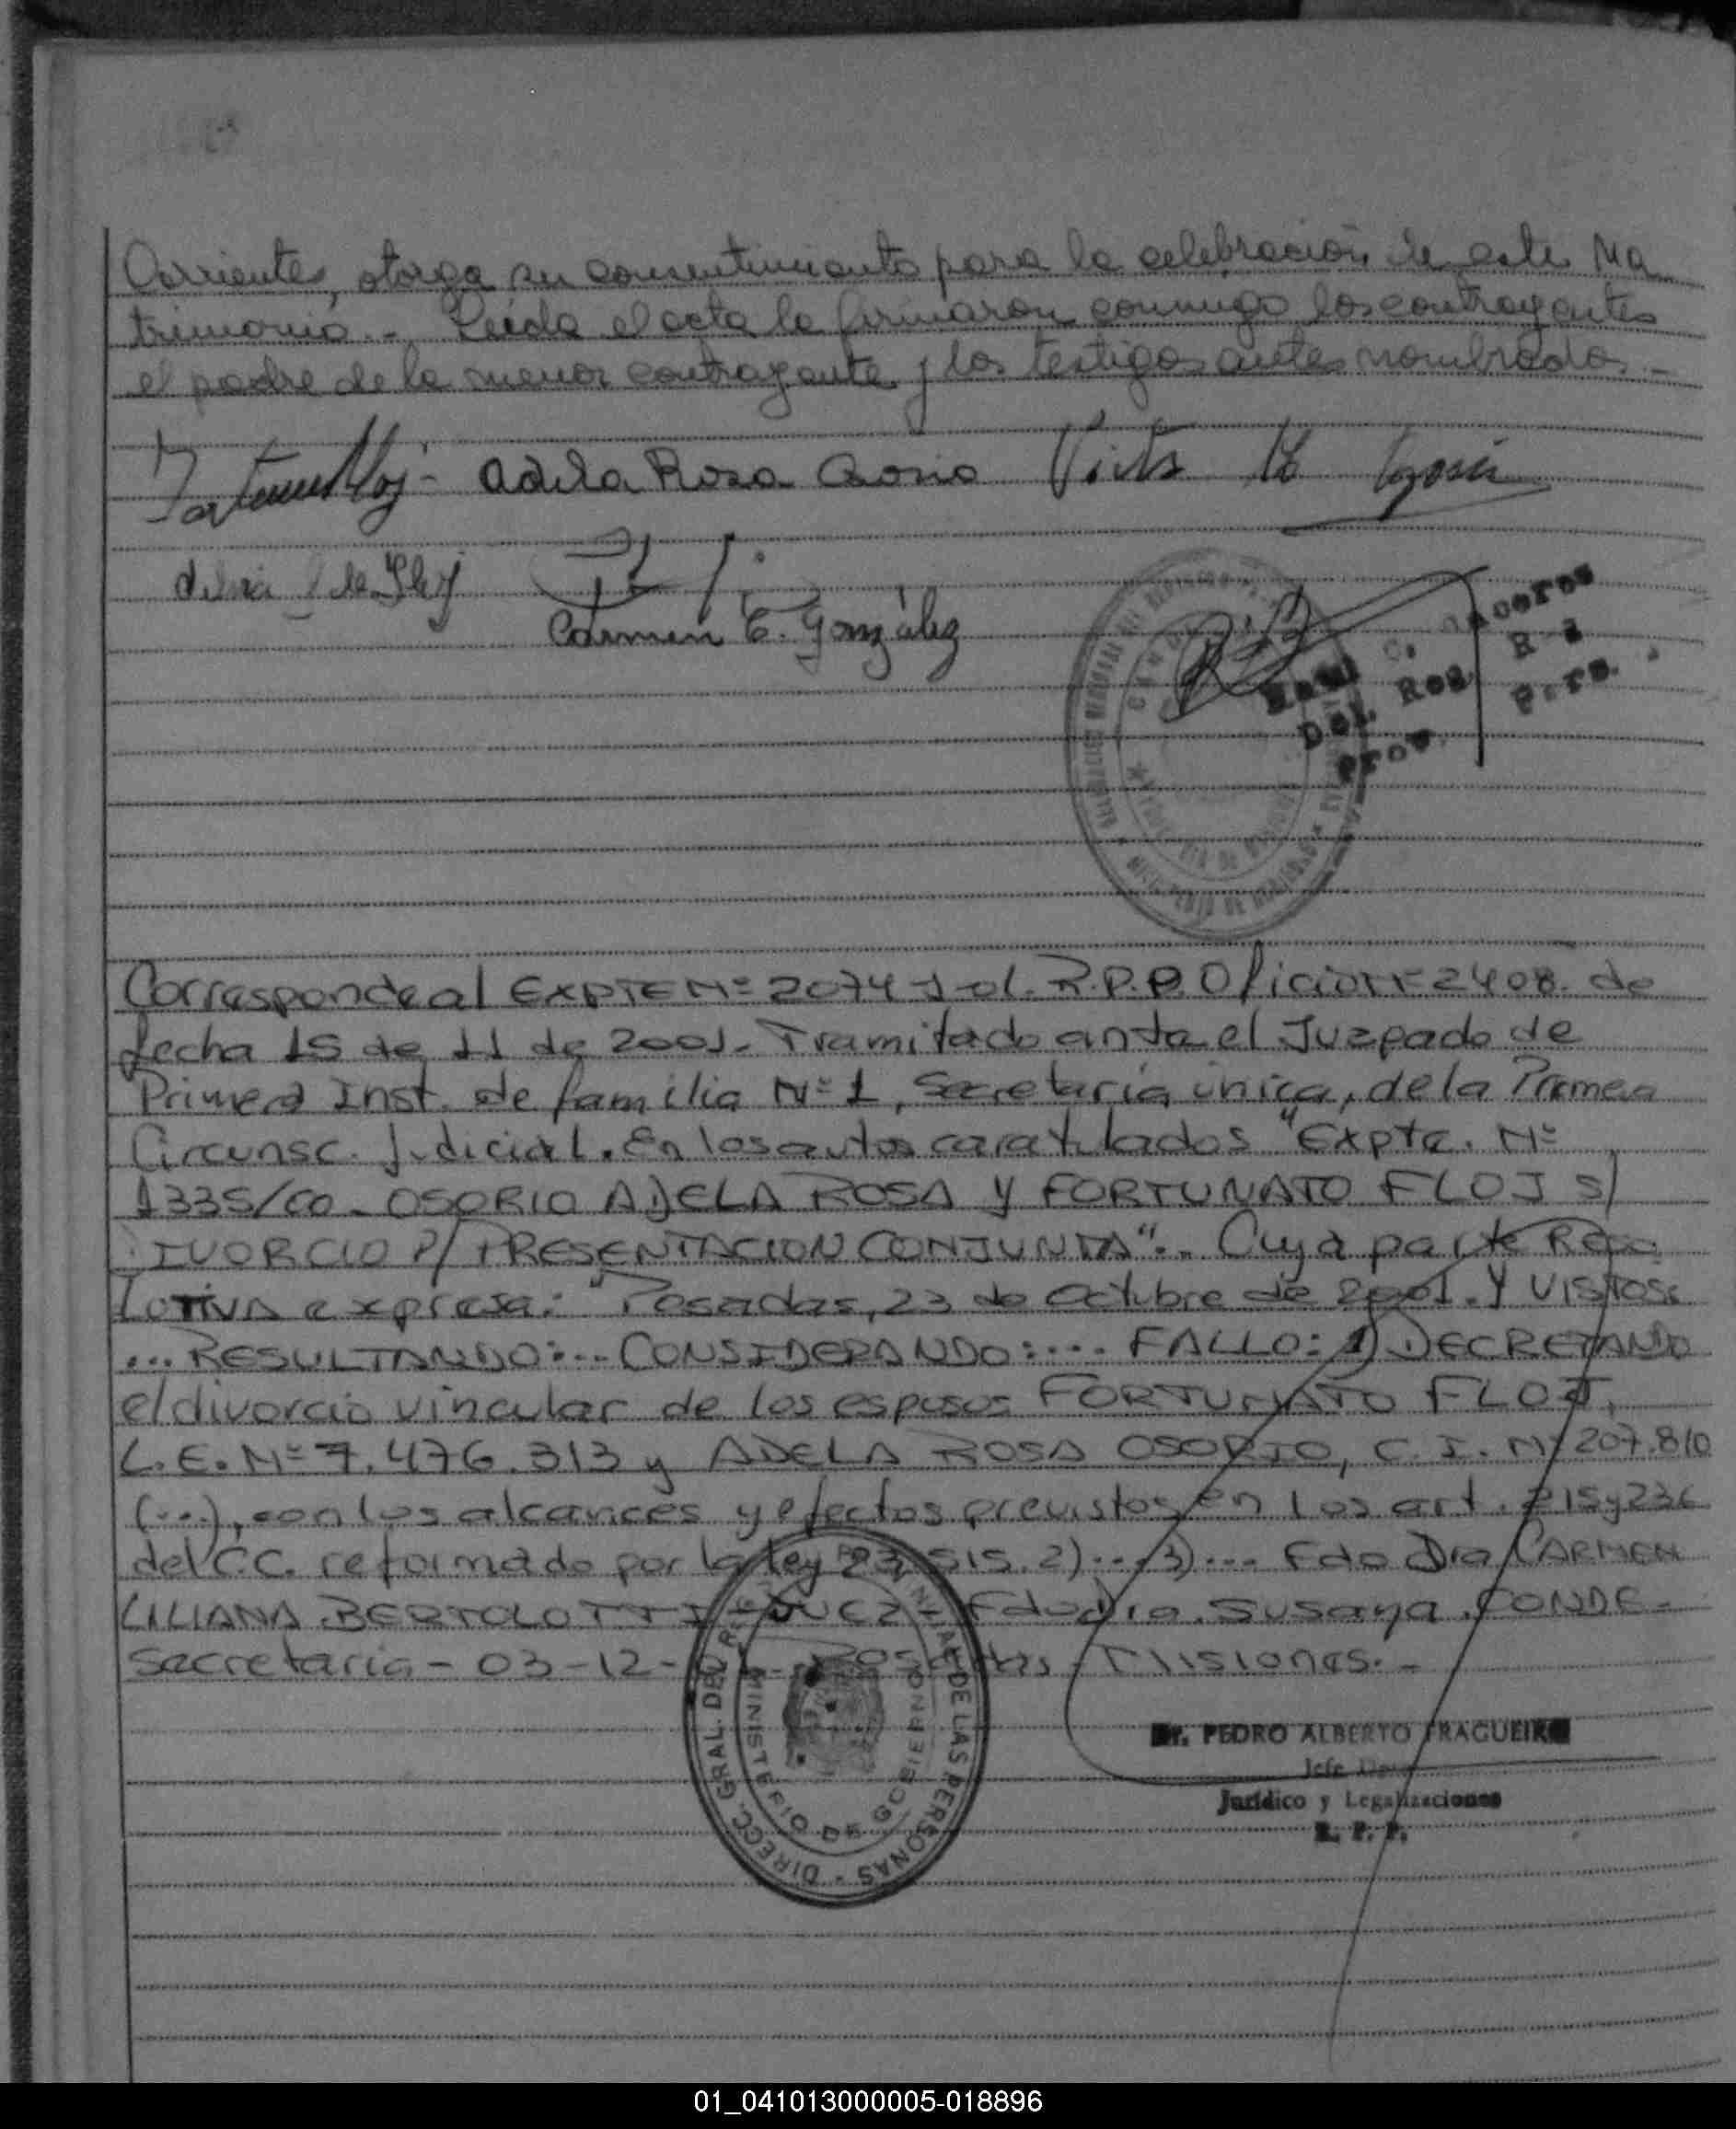 Corrientes, otorga su consentimiento para la celebración de este Ma
trimonio.- Leída el acta la firmaron conmigo los contrayentes
el padre de la menor contrayente y los testigos antes nombrados.-
Adela Rosa Osorio
Carmen E. González
Del. Reg.
Prov.
Corresponde al EXPTE Nº 2074 J-01. R.P.P. Oficio Nº 2408. de
fecha 15 de 11 de 2001.- Tramitado ante el Juzgado de
Primera Inst. de familia Nº 1, Secretaría única, de la Primera
Circunsc. Judicial. En los autos caratulados "Expte. Nº
1335/00 - OSORIO ADELA ROSA y FORTUNATO FLOJ s/
DIVORCIO P/ PRESENTACION CONJUNTA".- Cuya parte Reso
LUTIVA expresa: "Posadas, 23 de Octubre de 2001. Y VISTOS:
... RESULTANDO:... CONSIDERANDO:... FALLO: 1) DECRETANDO
el divorcio vincular de los esposos FORTUNATO FLOJ,
L.E. Nº 7.476.313 y ADELA ROSA OSORIO, C.I. Nº 207.810
(...), con los alcances y efectos previstos en los art. 215 y 236
del C.C. reformado por la ley 23.515. 2)... 3)... Fdo Dra CARMEN
LILIANA BERTOLOTTI - JUEZ - Fdo Dra. Susana CONDE-
Secretaria - 03-12- Posadas - Misiones.-
DIRECC. GRAL. DEL DE LAS PERSONAS
MINISTERIO DE GOBIERNO
Dr. PEDRO ALBERTO FRAGUEIRO
Jefe
Jurídico y Legalizaciones
R. P. P.
01_041013000005-018896